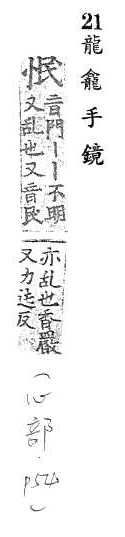 21
龍龕手鏡
怋
音門丨丨不明
又乱也又音民
亦乱也香嚴
又力迄反
(心部. p54)